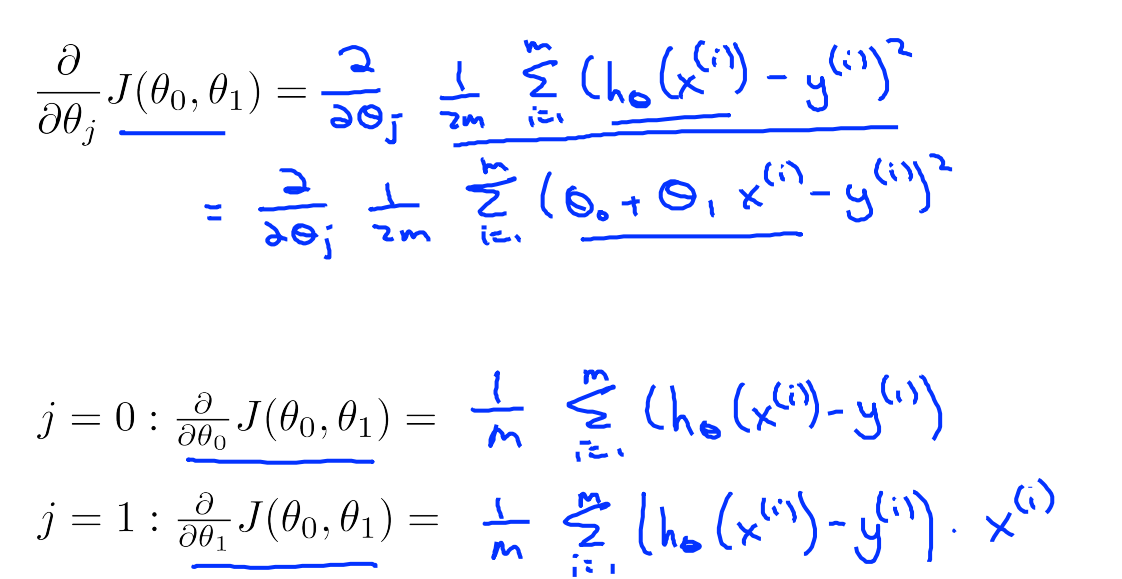 ∂/∂θⱼ J(θ₀, θ₁) = ∂/∂θⱼ 1/2m ∑ᵢ₌₁ᵐ (h_θ(x⁽ⁱ⁾) - y⁽ⁱ⁾)²
= ∂/∂θⱼ 1/2m ∑ᵢ₌₁ᵐ (θ₀ + θ₁ x⁽ⁱ⁾ - y⁽ⁱ⁾)²
j = 0 : ∂/∂θ₀ J(θ₀, θ₁) = 1/m ∑ᵢ₌₁ᵐ (h_θ(x⁽ⁱ⁾) - y⁽ⁱ⁾)
j = 1 : ∂/∂θ₁ J(θ₀, θ₁) = 1/m ∑ᵢ₌₁ᵐ (h_θ(x⁽ⁱ⁾) - y⁽ⁱ⁾) · x⁽ⁱ⁾